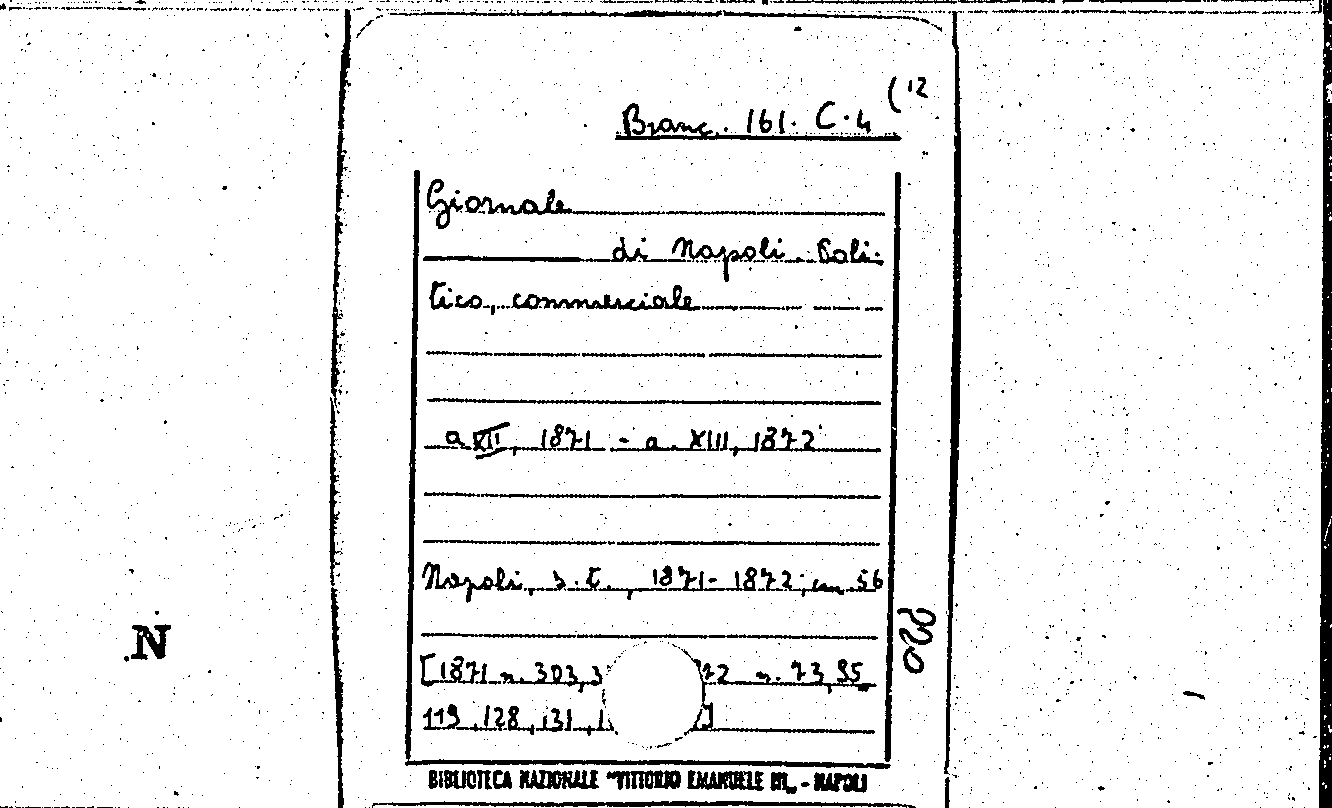 Branc. 161. C. 4 (12
Giornale
di Napoli. Poli-
tico, commerciale
a XII, 1871 - a. XIII, 1872
Napoli, s.t., 1871-1872; cm. 56
[1871 n. 303, 3 72 n. 73, 95
119, 128, 131, 1 ]
BIBLIOTECA NAZIONALE "VITTORIO EMANUELE III„ - NAPOLI
N